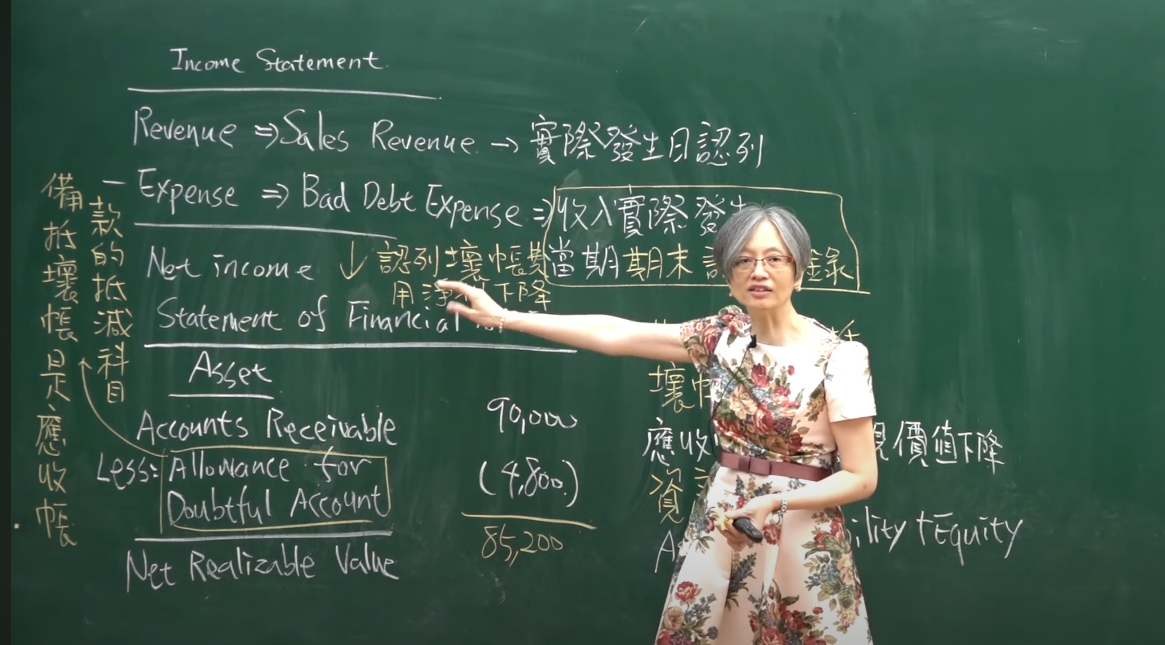 Income Statement
Revenue ⇒ Sales Revenue → 實際發生日認列
— Expense ⇒ Bad Debt Expense ⇒ 收入實際發生
當期期末
Net income ↓ 認列壞帳費
用 下降
Statement of Financial
Asset
Accounts Receivable 90,000
Less: Allowance for (4,800)
Doubtful Account
85,200
Net Realizable Value
備抵壞帳是應收帳
款的抵減科目
壞
應收 價值下降
資
A ility + Equity